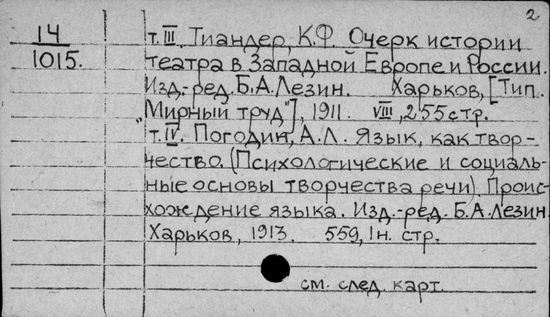 2
14
1015.
т. III. Тиандер, К.Ф. Очерк истории
театра в Западной Европе и России.
Изд.-ред. Б.А.Лезин. Харьков, [Тип.
„Мирный труд"], 1911. VIII, 255 стр.
т. IV. Погодин, А.Л. Язык, как твор-
чество. (Психологические и социаль-
ные основы творчества речи). Проис-
хождение языка. Изд.-ред. Б.А.Лезин.
Харьков, 1913. 559, 1н. стр.
см. след. карт.